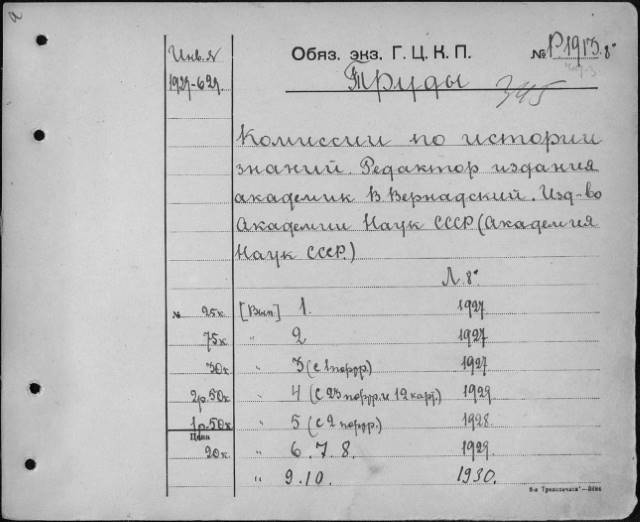 Инв. N
Обяз. экз. Г. Ц. К. П.
№ Р1913.8°
1927-627
Труды
345
Комиссии по истории
знаний. Редактор издания
академик В. Вернадский. Изд-во
Академии Наук СССР. (Академия
Наук СССР.)
Л. 8°
25к. [Вып] 1. 1927
75к „ 2 1927
30к „ 3 (с 1 портр.) 1927
2р.50к „ 4 (с 23 портр. и 12 карт.) 1929
1р.50к „ 5 (с 2 портр.) 1928.
Цена
20к. „ 6. 7. 8. 1929.
„ 9. 10. 1930.